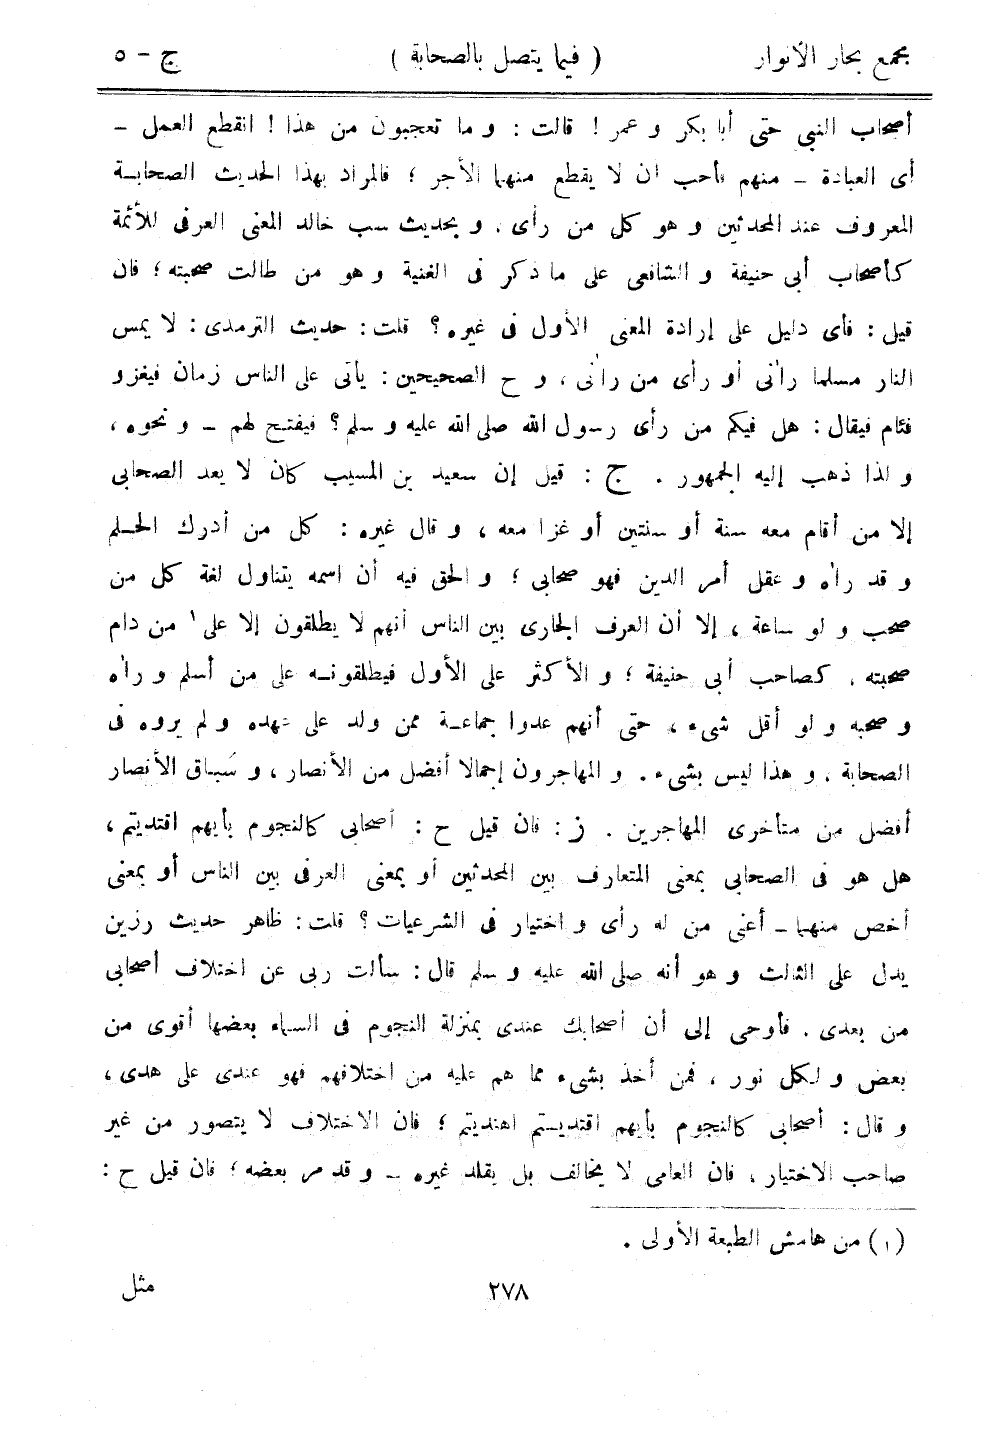 مجمع بحار الأنوار ( فيما يتصل بالصحابة ) ج - ٥
أصحاب النبي حتى أبا بكر و عمر ! قالت : و ما تعجبون من هذا ! انقطع العمل -
أى العبادة - منهم فأحب ان لا يقطع منهما الأجر ؛ فالمراد بهذا الحديث الصحابة
المعروف عند المحدثين و هو كل من رأى ، و بحديث سب خالد المعنى العرفى للأئمة
كأصحاب أبى حنيفة و الشافعى على ما ذكر فى الغنية و هو من طالت صحبته ؛ فان
قيل : فأى دليل على إرادة المعنى الأول فى غيره ؟ قلت : حديث الترمذى : لا يمس
النار مسلما رآنى أو رأى من رآنى ، و ح الصحيحين : يأتى على الناس زمان فيغزو
فئام فيقال : هل فيكم من رأى رسول الله صلى الله عليه و سلم ؟ فيفتح لهم - و نحوه ،
و لذا ذهب إليه الجمهور . ج : قيل إن سعيد بن المسيب كان لا يعد الصحابى
إلا من أقام معه سنة أو سنتين أو غزا معه ، و قال غيره : كل من أدرك الحلم
و قد رآه و عقل أمر الدين فهو صحابى ؛ و الحق فيه أن اسمه يتناول لغة كل من
صحب و لو ساعة ، إلا أن العرف الجارى بين الناس أنهم لا يطلقون إلا على ١ من دام
صحبته ، كصاحب أبى حنيفة ؛ و الأكثر على الأول فيطلقونه على من أسلم و رآه
و صحبه و لو أقل شىء ، حتى أنهم عدوا جماعة ممن ولد على عهده و لم يروه فى
الصحابة ، و هذا ليس بشىء . و المهاجرون إجمالا أفضل من الأنصار ، و سُباق الأنصار
أفضل من متأخرى المهاجرين . ز : فان قيل ح : أصحابى كالنجوم بأيهم اقتديتم ،
هل هو فى الصحابى بمعنى المتعارف بين المحدثين أو بمعنى العرفى بين الناس أو بمعنى
أخص منهما - أعنى من له رأى و اختيار فى الشرعيات ؟ قلت : ظاهر حديث رزين
يدل على الثالث و هو أنه صلى الله عليه و سلم قال : سألت ربى عن اختلاف أصحابى
من بعدى . فأوحى إلى أن أصحابك عندى بمنزلة النجوم فى السماء بعضها أقوى من
بعض و لكل نور ، فمن أخذ بشىء مما هم عليه من اختلافهم فهو عندى على هدى ،
و قال : أصحابى كالنجوم بأيهم اقتديتم اهتديتم ؛ فان الاختلاف لا يتصور من غير
صاحب الاختيار ، فان العامى لا يخالف بل يقلد غيره - و قد مر بعضه ؛ فان قيل ح :
(١) من هامش الطبعة الأولى .
٢٧٨ مثل